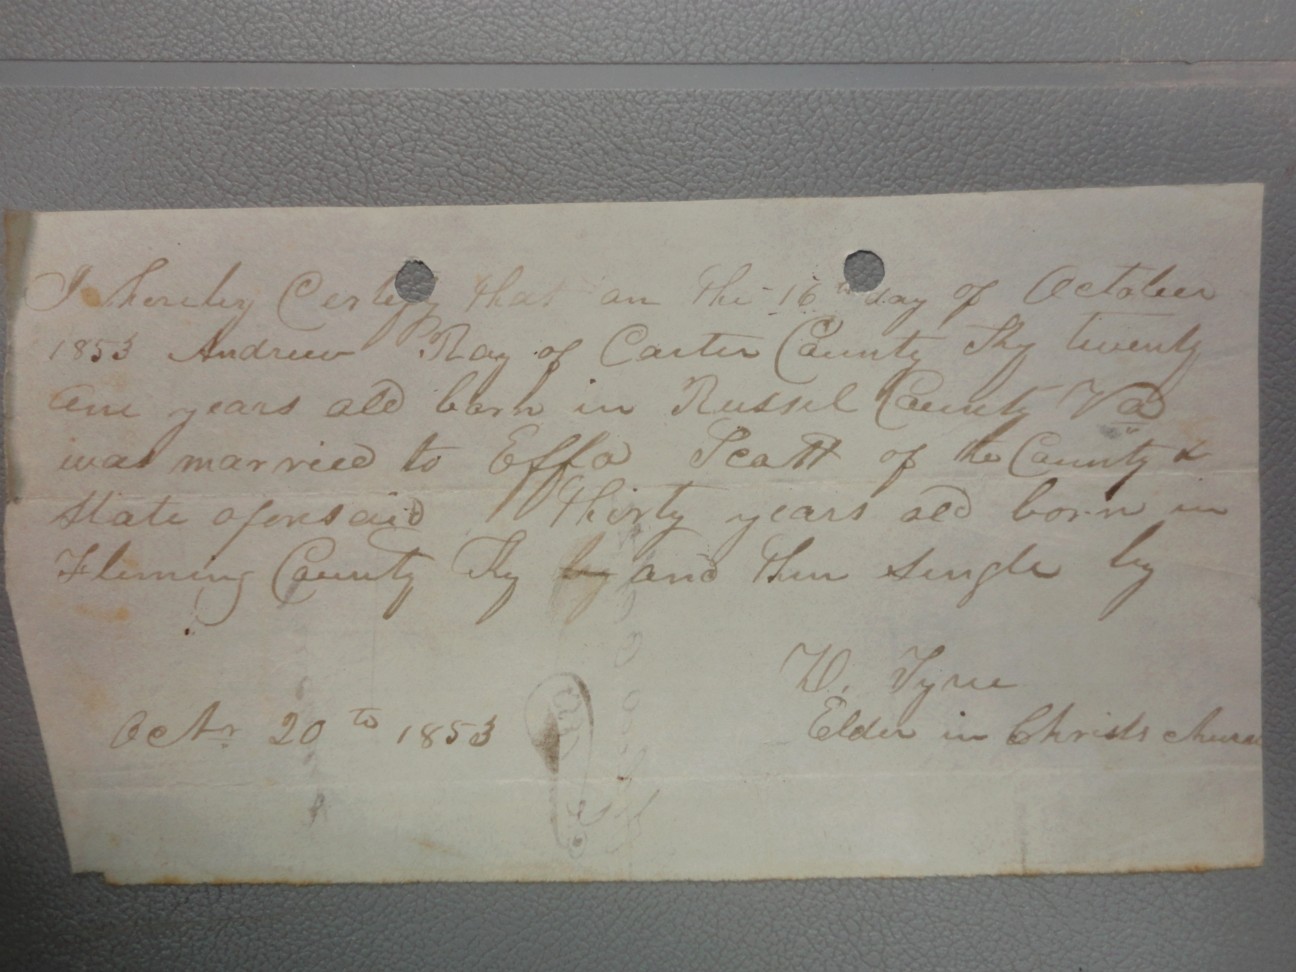 I hereby Certify that on the 16th day of October
1853 Andrew Ray of Carter County Ky twenty
One years old born in Russel County Va
was married to Effa Scott of the County &
State aforesaid Thirty years old born in
Fleming County Ky by and then single by
W. Tyree
Octr 20th 1853
Elder in Christs church